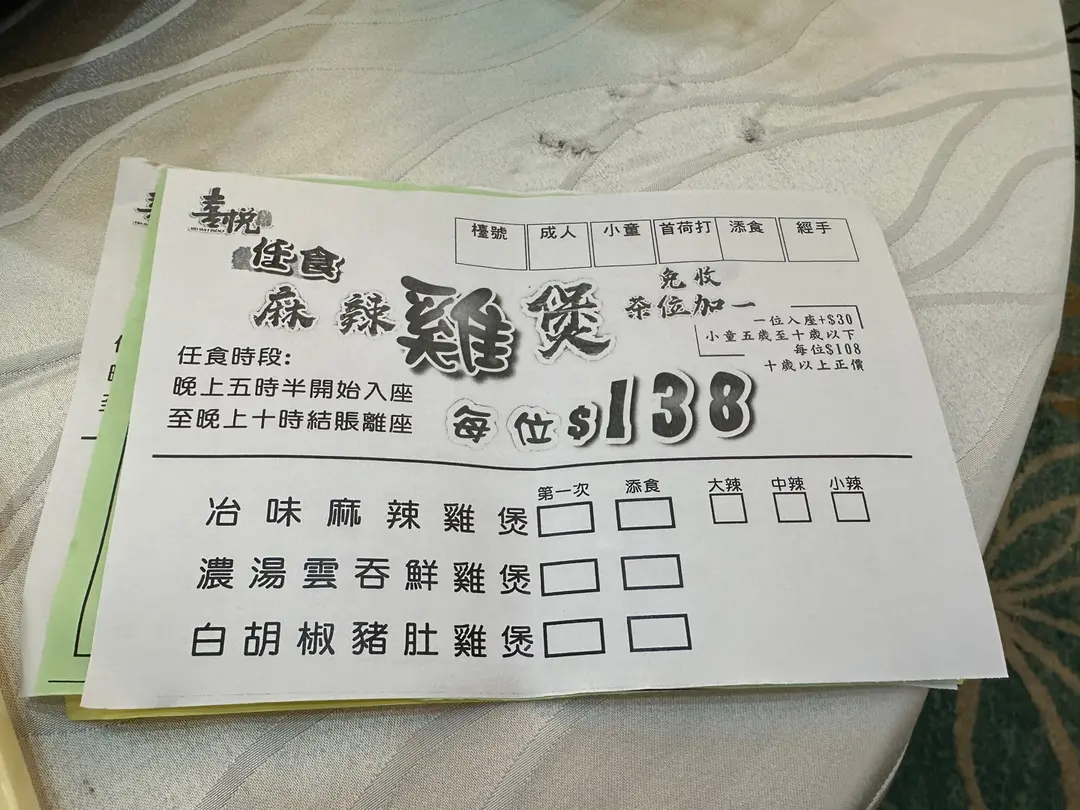 喜悦
任食
麻辣雞煲
檯號 成人 小童 首荷打 添食 經手
免收
茶位加一
一位入座+$30
小童五歲至十歲以下
每位$108
十歲以上正價
任食時段:
晚上五時半開始入座
至晚上十時結賬離座
每位$138
第一次 添食 大辣 中辣 小辣
冶味麻辣雞煲
濃湯雲吞鮮雞煲
白胡椒豬肚雞煲